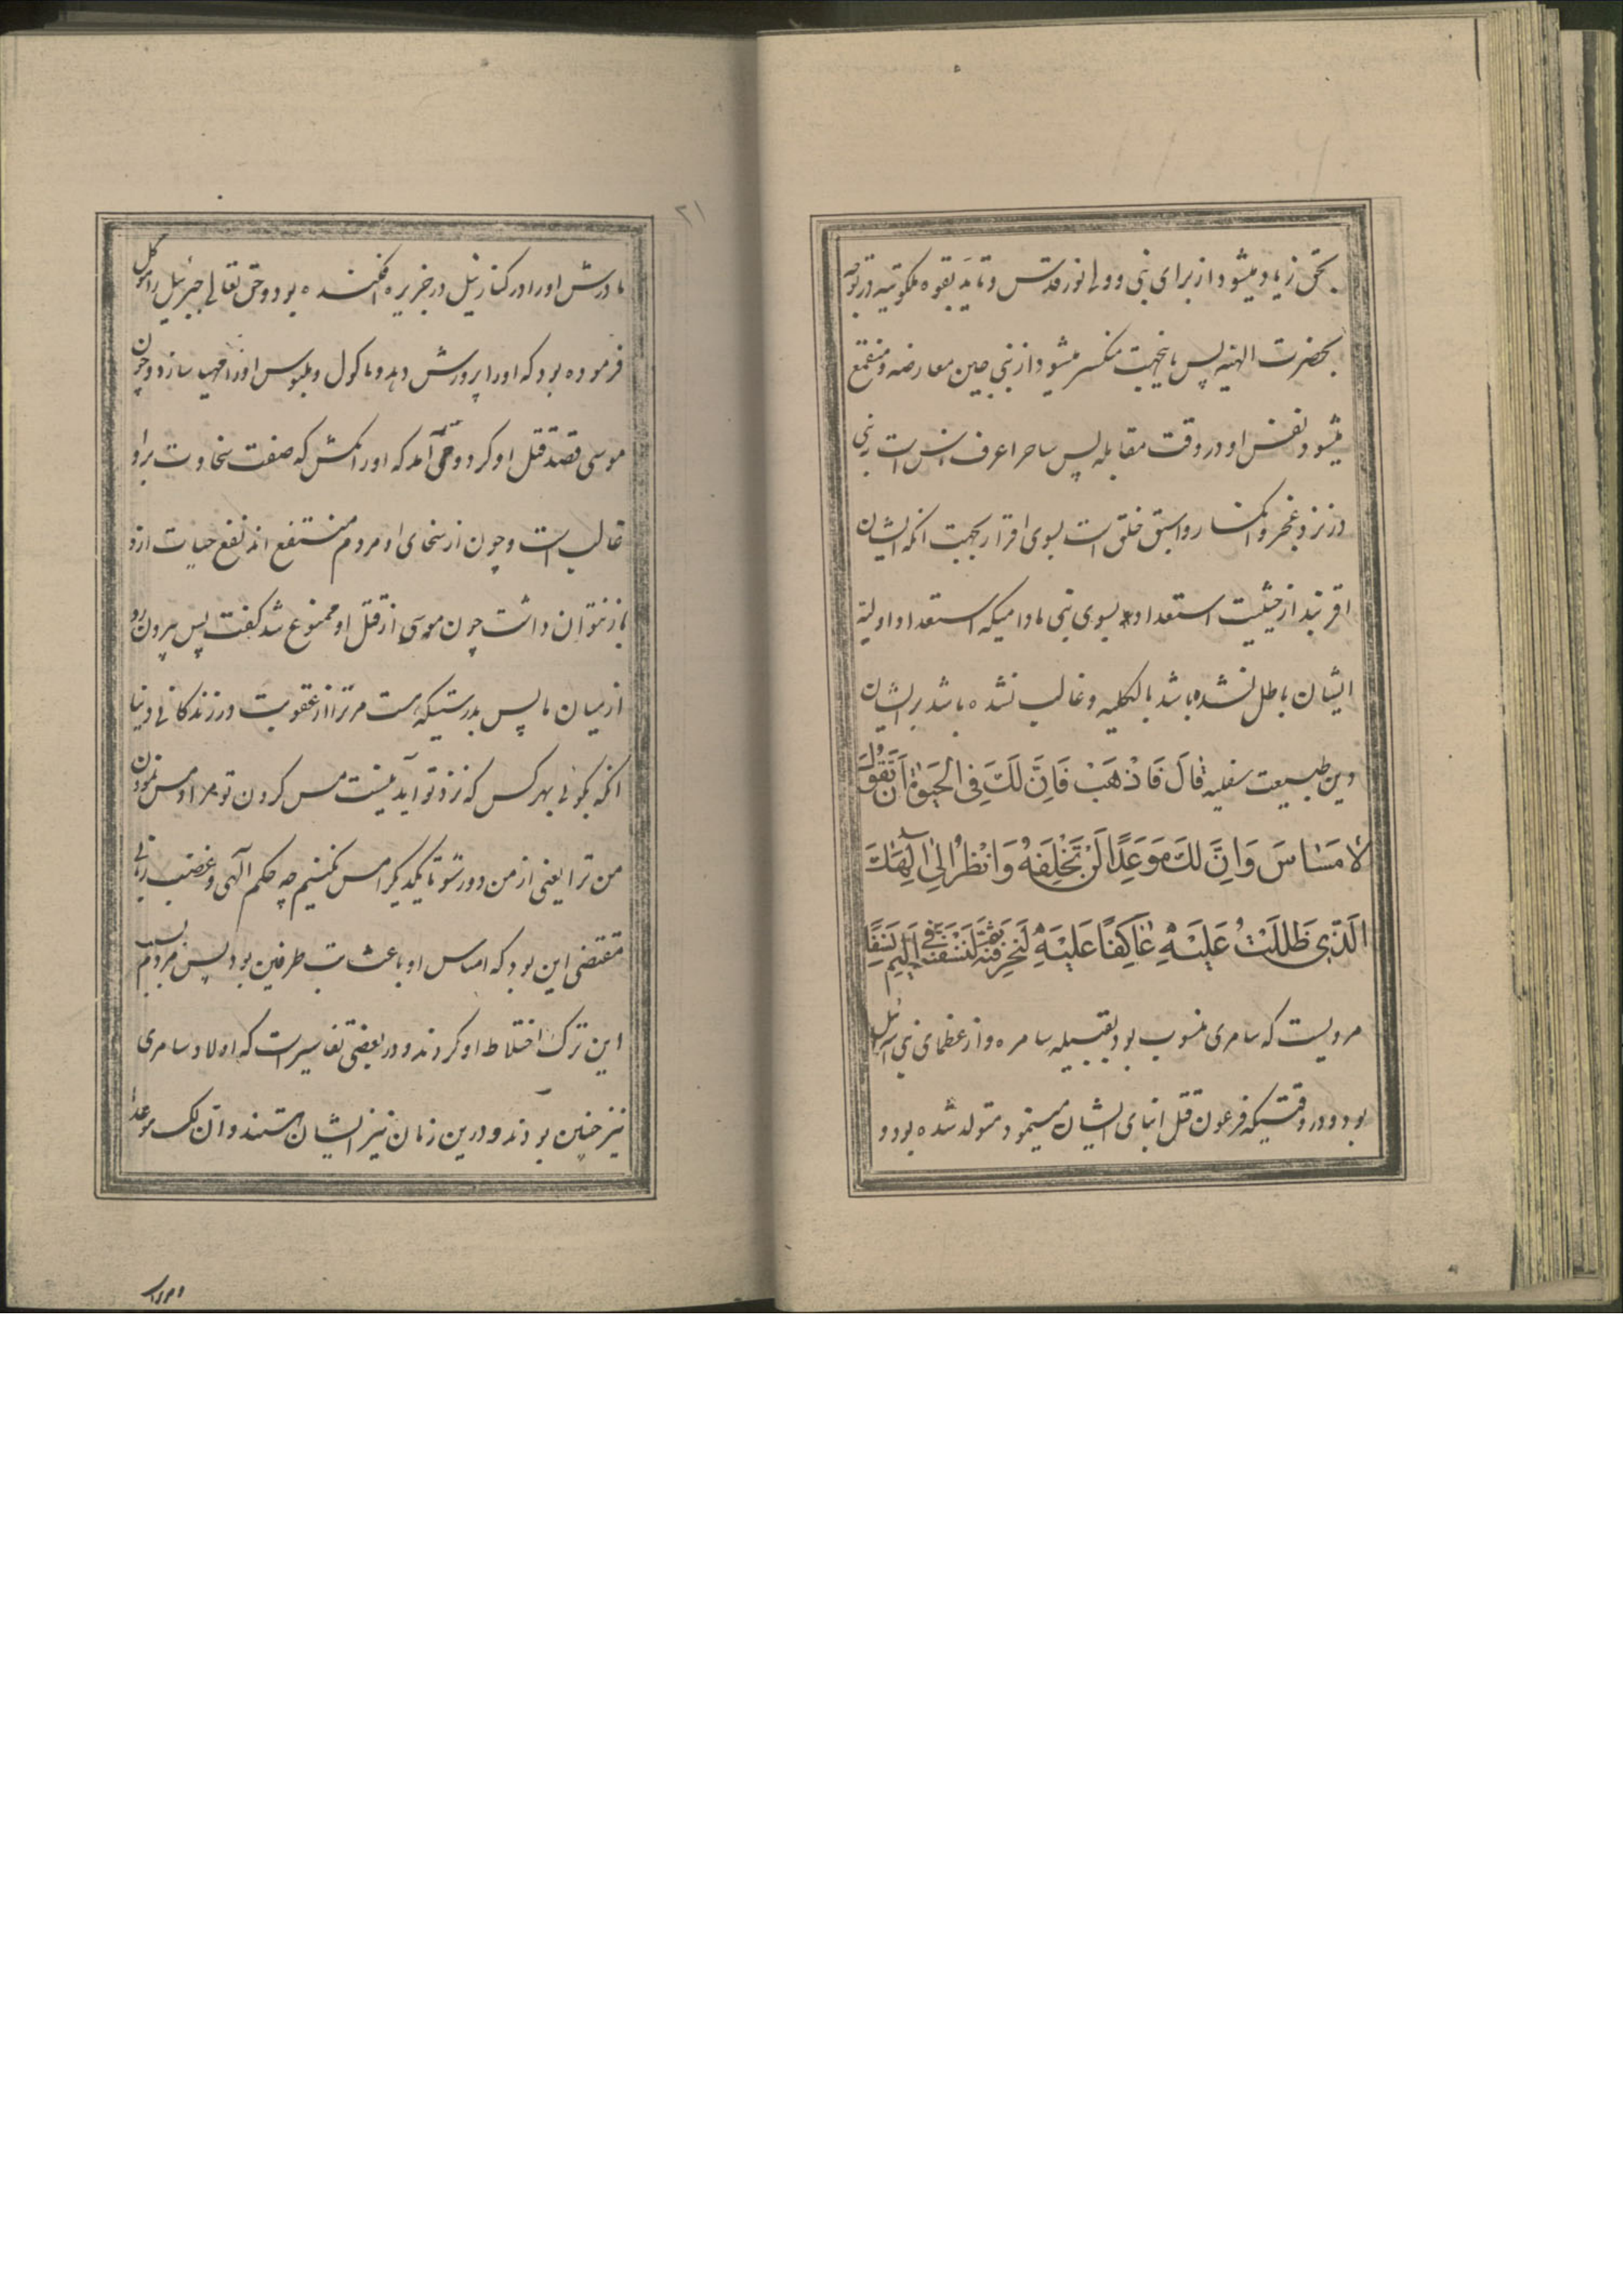 بحق زیاد میشود از برای نبی و ولی نور قدس و تایید بقوه ملکوتیه در توجه
بحضرت الهیه پس باینجهت منکسر میشود از نبی حین معارضه و منقمع
میشود نفس او در وقت مقابله پس ساحر اعرف ناس است به نبی
در نزد عجز و انکسار و اسبق خلق است بسوی اقرار بجهت انکه ایشان
اقربند از حیثیت استعداد بسوی نبی مادامیکه استعداد اولیه
ایشان باطل نشده باشد بالکلیه و غالب نشده باشد بر ایشان
دین طبیعت سفلیه قَالَ فَاذْهَبْ فَاِنَّ لَكَ فِی الْحَیٰوةِ اَنْ تَقُولَ
لَا مَسَاسَ وَاِنَّ لَكَ مَوْعِدًا لَنْ تُخْلَفَهُ وَانْظُرْ اِلٰی اِلٰهِكَ
الَّذِی ظَلَلْتَ عَلَیْهِ عَاكِفًا عَلَیْهِ لَنُحَرِّقَنَّهُ ثُمَّ لَنَنْسِفَنَّهُ فِی الْیَمِّ نَسْفًا
مرویست که سامری منسوب بود بقبیله سامره و از عظمای بنی اسرائیل
بود و در وقتیکه فرعون قتل ابنای ایشان مینمود متولد شده بود و
۲۱
مادرش او را در کنار نیل در جزیره افکنده بود و حق تعالی جبرئیل را موکل
فرموده بود که او را پرورش دهد و ماکول و ملبوس او را مهیا سازد و چون
موسی قصد قتل او کرد وحی آمد که او را مکش که صفت سخاوت بر او
غالب است و چون از سخای او مردم منتفع اند نفع حیات ازو
باز نتوان داشت چون موسی از قتل او ممنوع شد گفت پس بیرون رو
از میان ما پس بدرستیکه هست مر ترا از عقوبت در زندکانی دنیا
انکه بگوئی بهر کس که نزد تو آید نیست مس کردن تو مرا و مس نمودن
من ترا یعنی از من دور شو تا یکدیگر را مس نکنیم چه حکم الهی و غضب ربانی
مقتضی این بود که امساس او باعث تب طرفین بود پس مردم بسبب
این ترک اختلاط او کردند و در بعضی تفاسیر است که اولاد سامری
نیز چنین بودند و درین زمان نیز ایشان هستند و ان لک موعدا